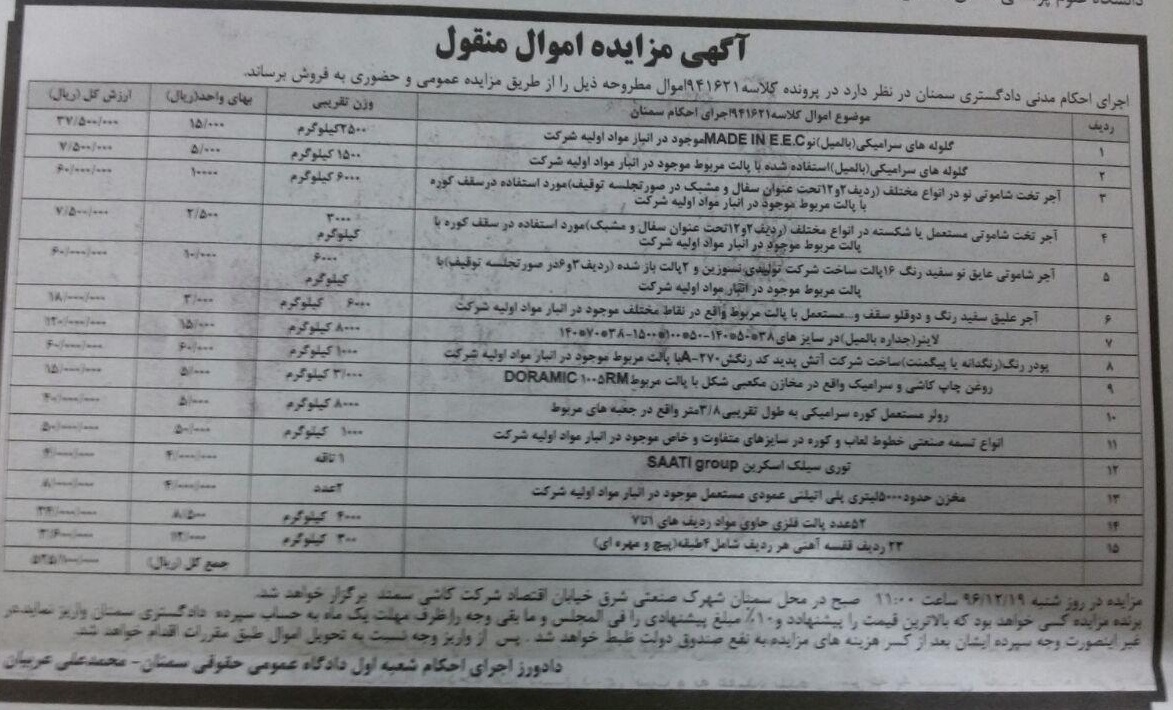 آگهی مزایده اموال منقول
اجرای احکام مدنی دادگستری سمنان در نظر دارد در پرونده کلاسه ۹۴۱۶۲۱اموال مطروحه ذیل را از طریق مزایده عمومی و حضوری به فروش برساند.
ردیف موضوع اموال کلاسه ۹۴۱۶۲۱اجرای احکام سمنان وزن تقریبی بهای واحد(ریال) ارزش کل (ریال)
۱ گلوله های سرامیکی(بالمیل)نو MADE IN E.E.Cموجود در انبار مواد اولیه شرکت ۲۵۰۰کیلوگرم ۱۵/۰۰۰ ۳۷/۵۰۰/۰۰۰
۲ گلوله های سرامیکی(بالمیل)استفاده شده با پالت مربوط موجود در انبار مواد اولیه شرکت ۱۵۰۰ کیلوگرم ۵/۰۰۰ ۷/۵۰۰/۰۰۰
۳ آجر تخت شاموتی نو در انواع مختلف (ردیف۲و۱۲تحت عنوان سفال و مشبک در صورتجلسه توقیف)مورد استفاده درسقف کوره ۶۰۰۰ کیلوگرم ۱۰۰۰۰ ۶۰/۰۰۰/۰۰۰
با پالت مربوط موجود در انبار مواد اولیه شرکت
۴ آجر تخت شاموتی مستعمل یا شکسته در انواع مختلف (ردیف۲و۱۲تحت عنوان سفال و مشبک)مورد استفاده در سقف کوره با ۳۰۰۰ ۲/۵۰۰ ۷/۵۰۰/۰۰۰
پالت مربوط موجود در انبار مواد اولیه شرکت کیلوگرم
۵ آجر شاموتی عایق نو سفید رنگ ۱۶پالت ساخت شرکت تولیدی نسوزین و ۲پالت باز شده (ردیف۳و۶در صورتجلسه توقیف)با ۶۰۰۰ ۱۰/۰۰۰ ۶۰/۰۰۰/۰۰۰
پالت مربوط موجود در انبار مواد اولیه شرکت کیلوگرم
۶ آجر علیق سفید رنگ و دوقلو سقف و...مستعمل با پالت مربوط واقع در نقاط مختلف موجود در انبار مواد اولیه شرکت ۶۰۰۰ کیلوگرم ۳/۰۰۰ ۱۸/۰۰۰/۰۰۰
۷ لاینر(جداره بالمیل)در سایز های ۸۰۰۰ کیلوگرم ۱۵/۰۰۰ ۱۲۰/۰۰۰/۰۰۰
۸ پودر رنگ(رنگدانه یا پیگمنت)ساخت شرکت آتش پدید کد رنگش A-۲۷۰با پالت مربوط موجود در انبار مواد اولیه شرکت ۱۰۰۰ کیلوگرم ۶۰/۰۰۰ ۶۰/۰۰۰/۰۰۰
۹ روغن چاپ کاشی و سرامیک واقع در مخازن مکعبی شکل با پالت مربوط DORAMIC ۱۰۰۵RM ۳/۰۰۰ کیلوگرم ۵/۰۰۰ ۱۵/۰۰۰/۰۰۰
۱۰ رولر مستعمل کوره سرامیکی به طول تقریبی ۳/۸متر واقع در جعبه های مربوط ۸۰۰۰ کیلوگرم ۵/۰۰۰ ۴۰/۰۰۰/۰۰۰
۱۱ انواع تسمه صنعتی خطوط لعاب و کوره در سایزهای متفاوت و خاص موجود در انبار مواد اولیه شرکت ۱۰۰۰ کیلوگرم ۵۰/۰۰۰ ۵۰/۰۰۰/۰۰۰
۱۲ توری سیلک اسکرین SAATI group ۱ تاقه ۴/۰۰۰/۰۰۰ ۴/۰۰۰/۰۰۰
۱۳ مخزن حدود۵۰۰۰لیتری پلی اتیلنی عمودی مستعمل موجود در انبار مواد اولیه شرکت ۲عدد ۴/۰۰۰/۰۰۰ ۸/۰۰۰/۰۰۰
۱۴ ۵۲عدد پالت فلزی حاوی مواد ردیف های ۱تا۷ ۴۰۰۰ کیلوگرم ۸/۵۰۰ ۳۴/۰۰۰/۰۰۰
۱۵ ۲۳ ردیف قفسه آهنی هر ردیف شامل۴طبقه(پیچ و مهره ای) ۳۰۰ کیلوگرم ۱۲/۰۰۰ ۳/۶۰۰/۰۰۰
جمع کل (ریال) ۵۲۵/۱۰۰/۰۰۰
مزایده در روز شنبه ۹۶/۱۲/۱۹ ساعت ۱۱:۰۰ صبح در محل سمنان شهرک صنعتی شرق خیابان اقتصاد شرکت کاشی سمند برگزار خواهد شد.
برنده مزایده کسی خواهد بود که بالاترین قیمت را پیشنهادد و۱۰٪ مبلغ پیشنهادی را فی المجلس و ما بقی وجه راظرف مهلت یک ماه به حساب سپرده دادگستری سمنان واریز نمایددر
غیر اینصورت وجه سپرده ایشان بعد از کسر هزینه های مزایده،به نفع صندوق دولت ظبط خواهد شد . پس از واریز وجه نسبت به تحویل اموال طبق مقررات اقدام خواهد شد.
دادورز اجرای احکام شعبه اول دادگاه عمومی حقوقی سمنان- محمدعلی عربیان